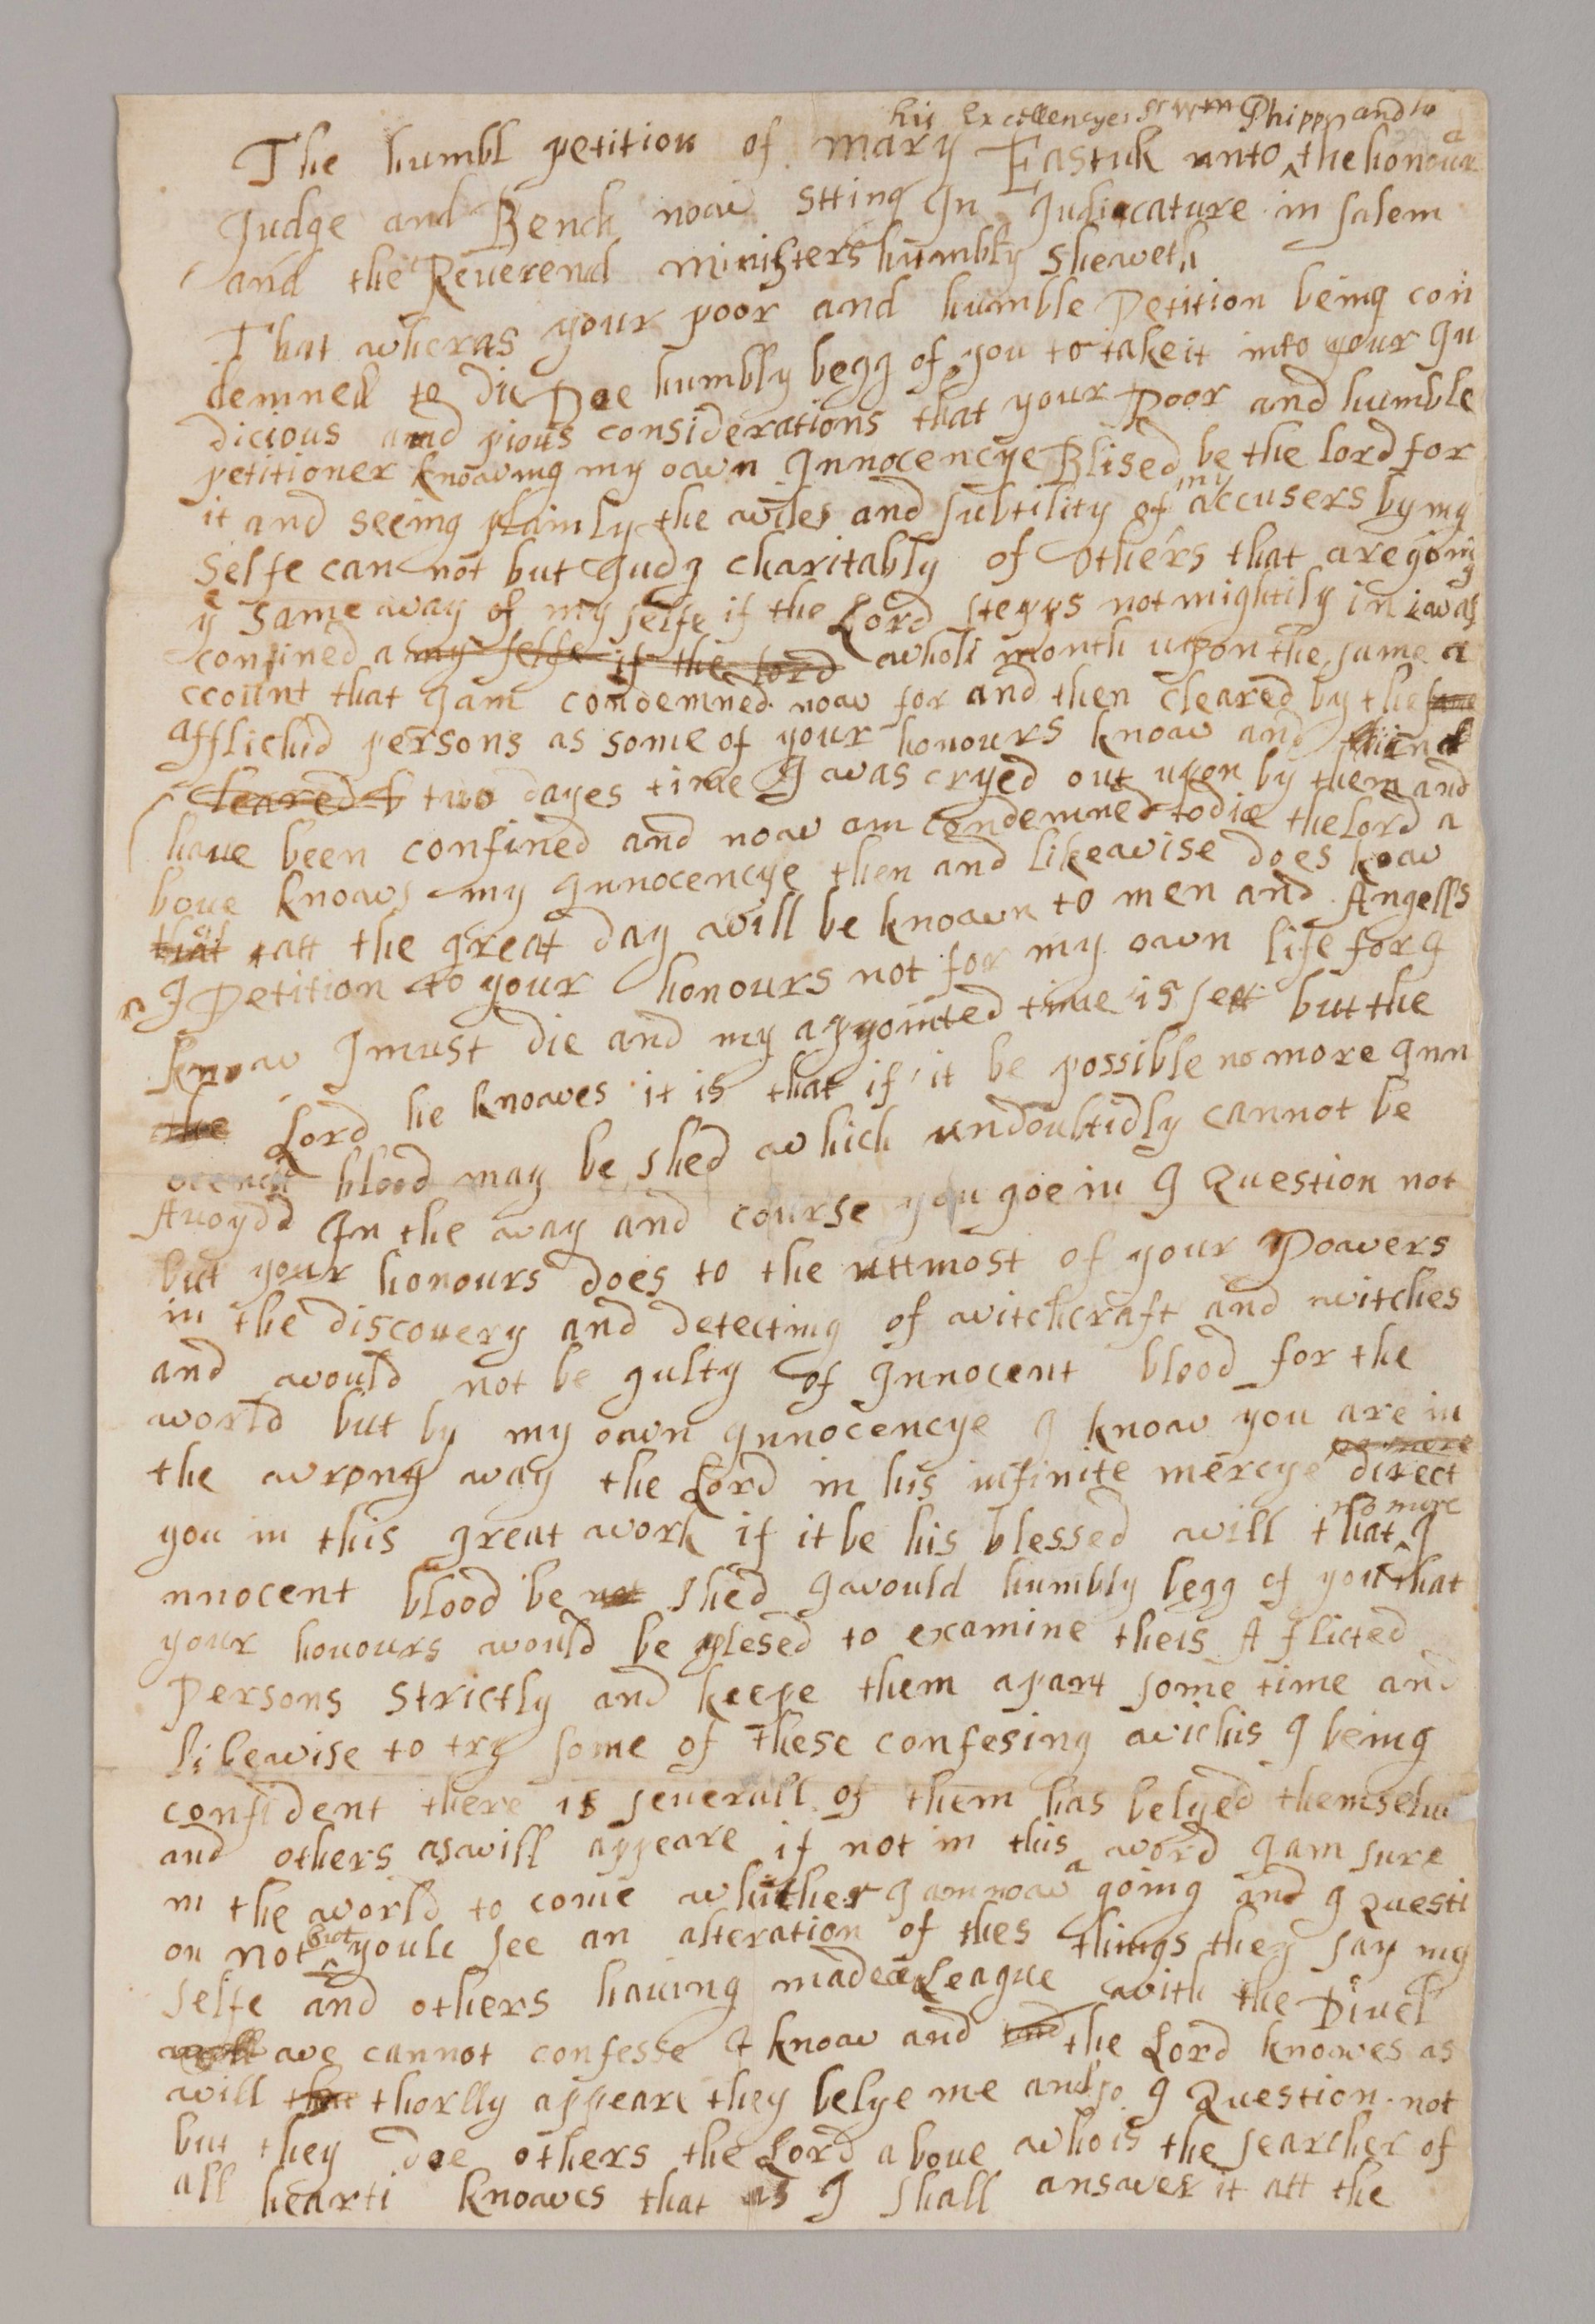 his Excellencye: Sr Wm Phipps and to
The humbl petition of mary Eastick unto ^ the honoura
Judge and Bench now Stting In Judicature in Salem
and the Reuerend ministers humbly Sheweth
That wheras your poor and humble Petition being con
demned to die Doe humbly begg of you to take it into your Ju
dicious and pious considerations that your Poor and humble
petitioner knowing my own Innocencye Blised be the lord for
my
it and seeing plainly the wiles and subtility of accusers by my
Selfe can not but Judg charitably of others that are going
ye same way of my selfe if the Lord stepps not mightily in i was
confined a my selfe if the lord whole month upon the same a
ccount that I am condemned now for and then cleared by the
afflicted persons as some of your honours know and in
cleared b two dayes time I was cryed out upon by them and
haue been confined and now am condemned to die the lord a
boue knows my Innocencye then and likewise does know
that att the great day will be known to men and Angells
I Petition to your honours not for my own life for I
know I must die and my appointed time is sett but the
the Lord he knowes it is that if it be possible no more Inn
ocent blood may be shed which undoubtidly cannot be
Auoydd In the way and course you goe in I Question not
but your honours does to the uttmost of your Powers
in the discouery and detecting of witchcraft and witches
and would not be gulty of Innocent blood for the
world but by my own Innocencye I know you are in
the wrong way the Lord in his infinite mercye direct
no more
you in this great work if it be his blessed will that ^ I
nnocent blood be not shed I would humbly begg of you that
your honours would be plesed to examine theis Aflicted
Persons strictly and keepe them apart some time and
likewise to try some of these confesing wichis I being
confident there is seuerall of them has belyed themselus
and others as will appeare if not in this word I am sure
a
in the world to come whither I am now going and I Questi
but
on not ^ youle see an alteration of thes things they say my
selfe and others hauing made a League with the Diuel
we cannot confesse I know and and the Lord knowes as
will the thorlly appeare they belye me and so I Question not
but they doe others the Lord aboue who is the searcher of
all hearts knowes that as I shall answer it att the